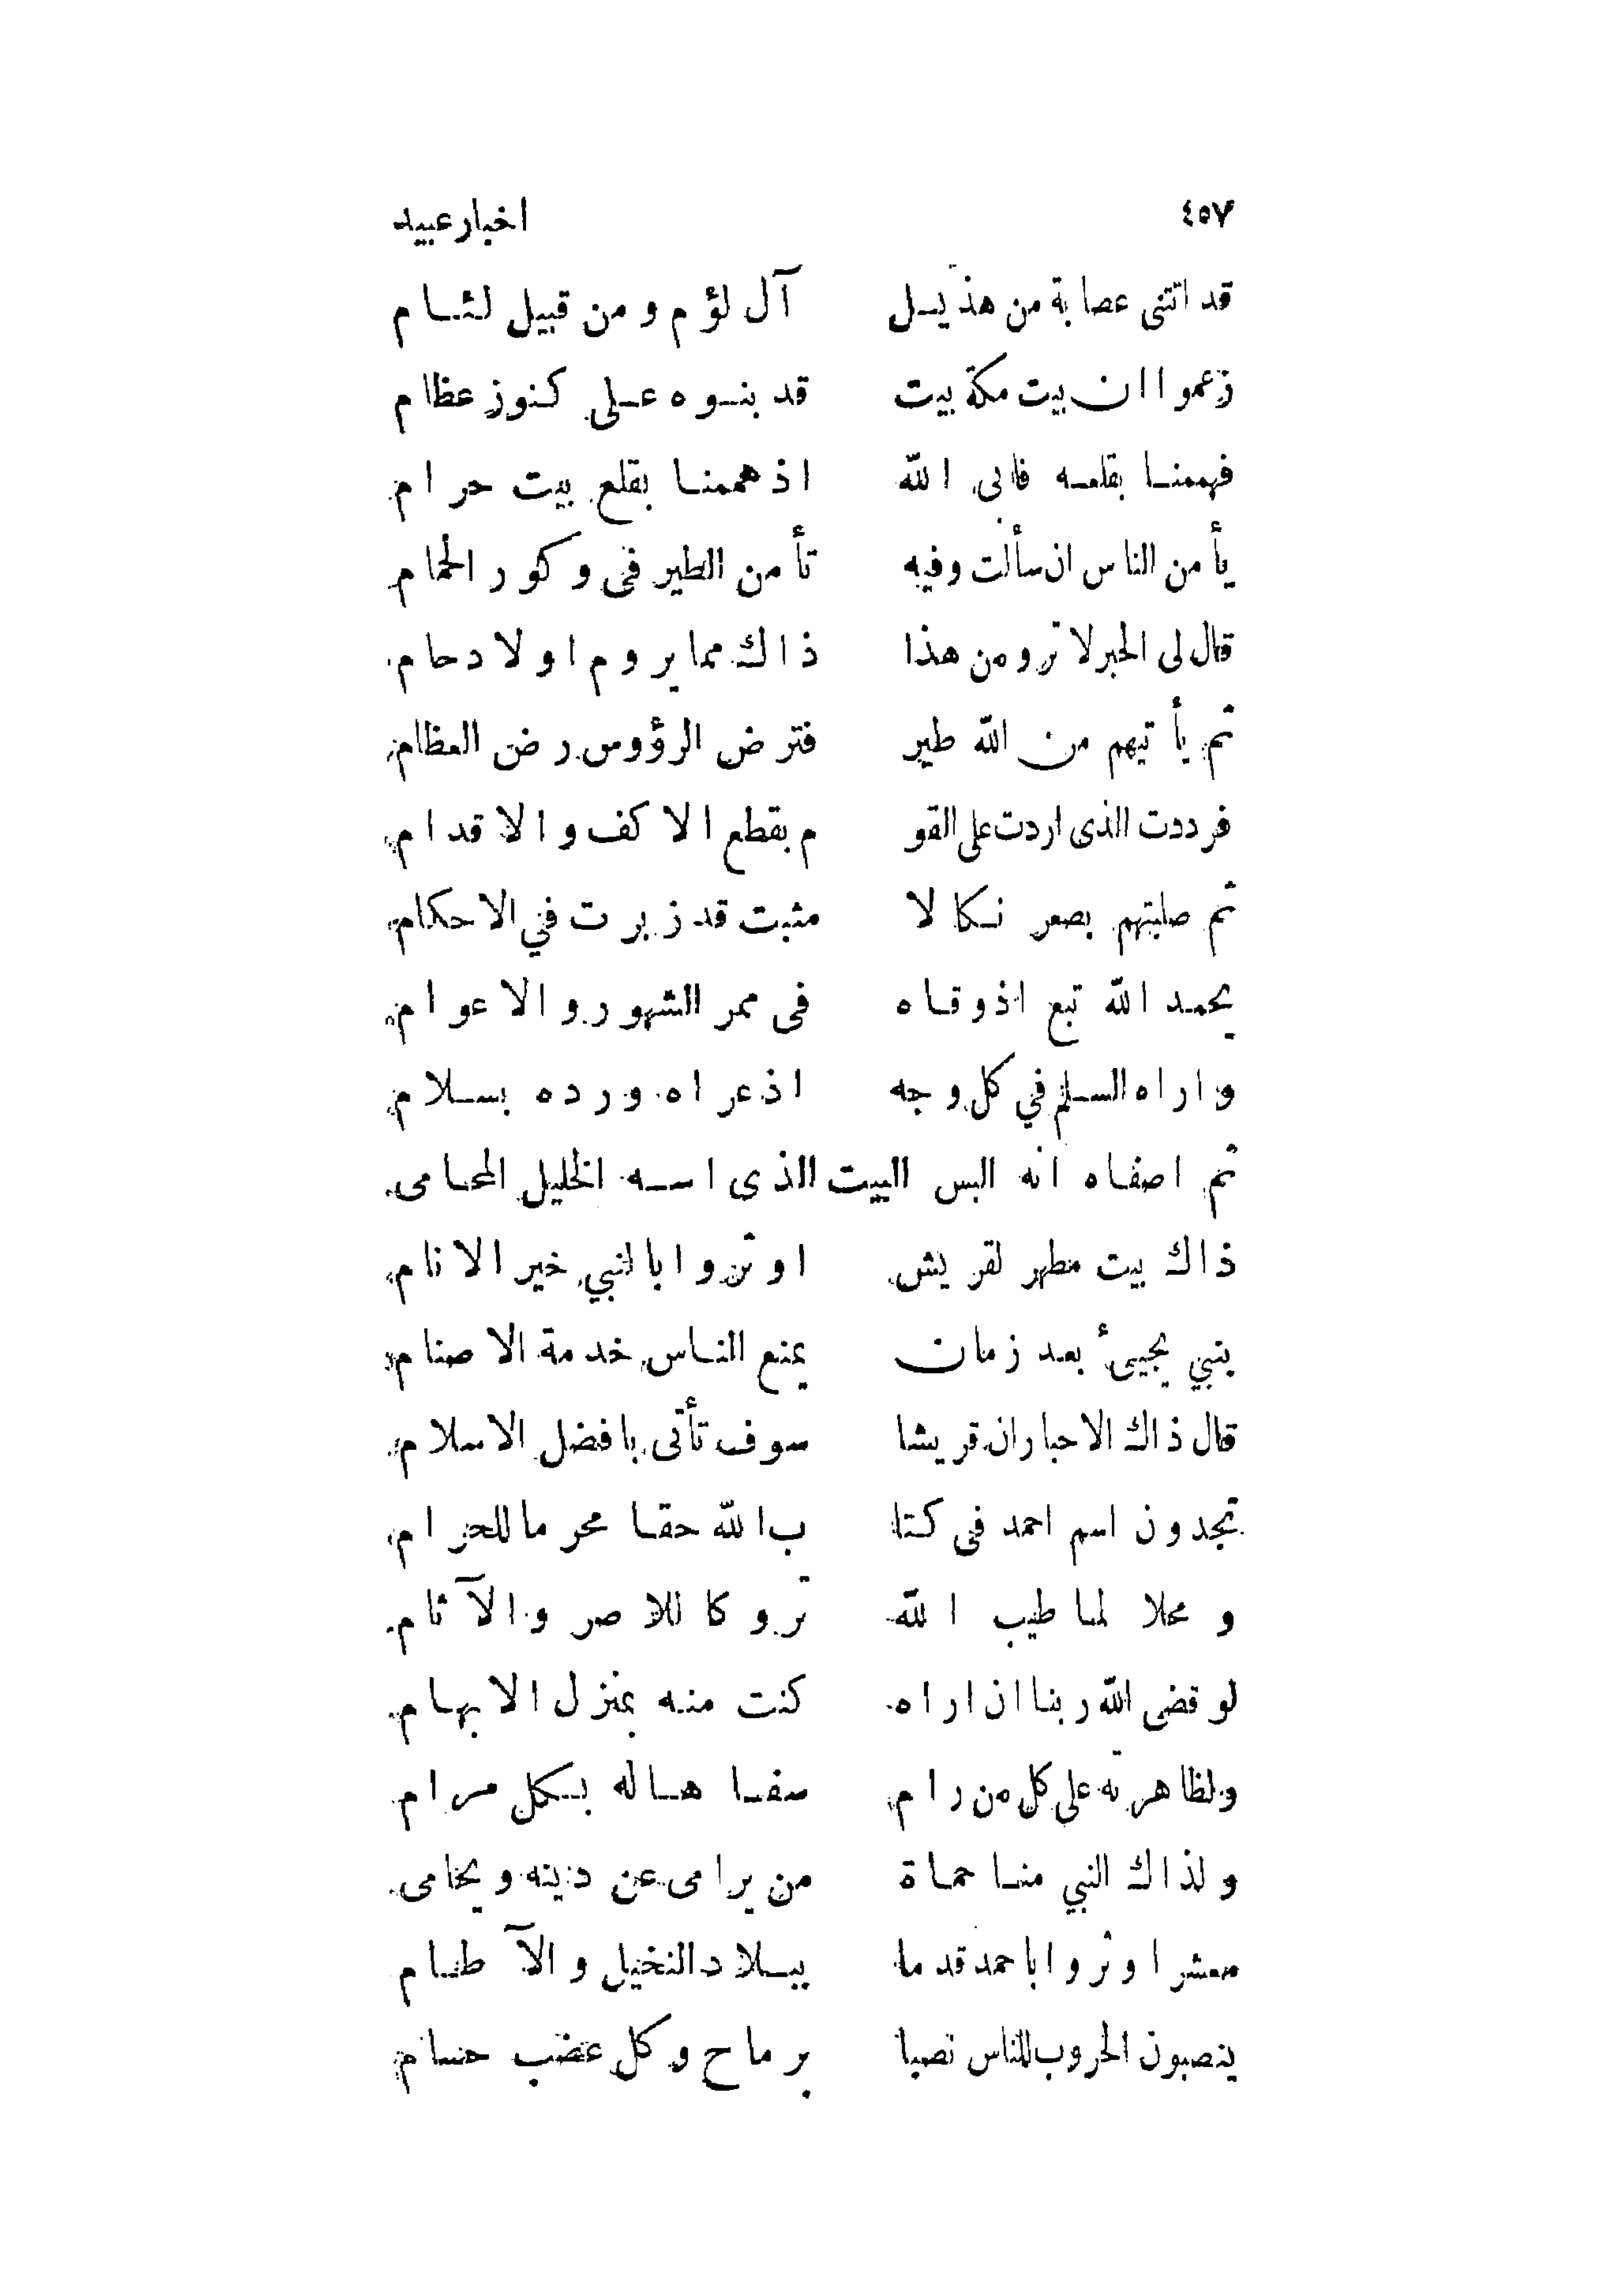 ٤٥٧ اخبار عبيد
قد اتتنى عصابة من هذيل آل لؤم ومن قبيل لئام
زعموا ان بيت مكة بيت قد بنوه على كنوز عظام
فهممنا بقلعه فابى الله اذ هممنا بقلع بيت حرام
يأمن الناس ان سألت وفيه تأمن الطير فى وكور الحمام
قال لى الحبر لا ترومن هذا ذاك مما يروم اولاد حام
ثم يأتيهم من الله طير فترض الرؤوس رض العظام
فرددت الذى اردت على القو م بقطع الاكف والاقدام
ثم صلبتهم بصعر نكالا مثبت قد زبرت في الاحكام
يحمد الله تبع اذ وقاه فى ممر الشهور والاعوام
واراه السلم في كل وجه اذ عراه ورده بسلام
ثم اصفاه انه البس البيت الذى اسه الخليل المحامى
ذاك بيت مطهر لقريش اوثروا بالنبي خير الانام
بنبي يجيئ بعد زمان يمنع الناس خدمة الاصنام
قال ذاك الاحبار ان قريشا سوف تأتى بافضل الاسلام
تجدون اسم احمد فى كتا ب الله حقا محرما للحرام
ومحلا لما طيب الله تروكا للاصر والآثام
لو قضى الله ربنا ان اراه كنت منه بمنزل الابهام
ولظاهرته على كل من رام سفاهاله بكل مرام
ولذاك النبي منا حماة من يرامى عن دينه ويحامى
معشر اوثروا باحمد قدما ببلاد النخيل والآطام
ينصبون الحروب للناس نصبا برماح وكل عضب حسام